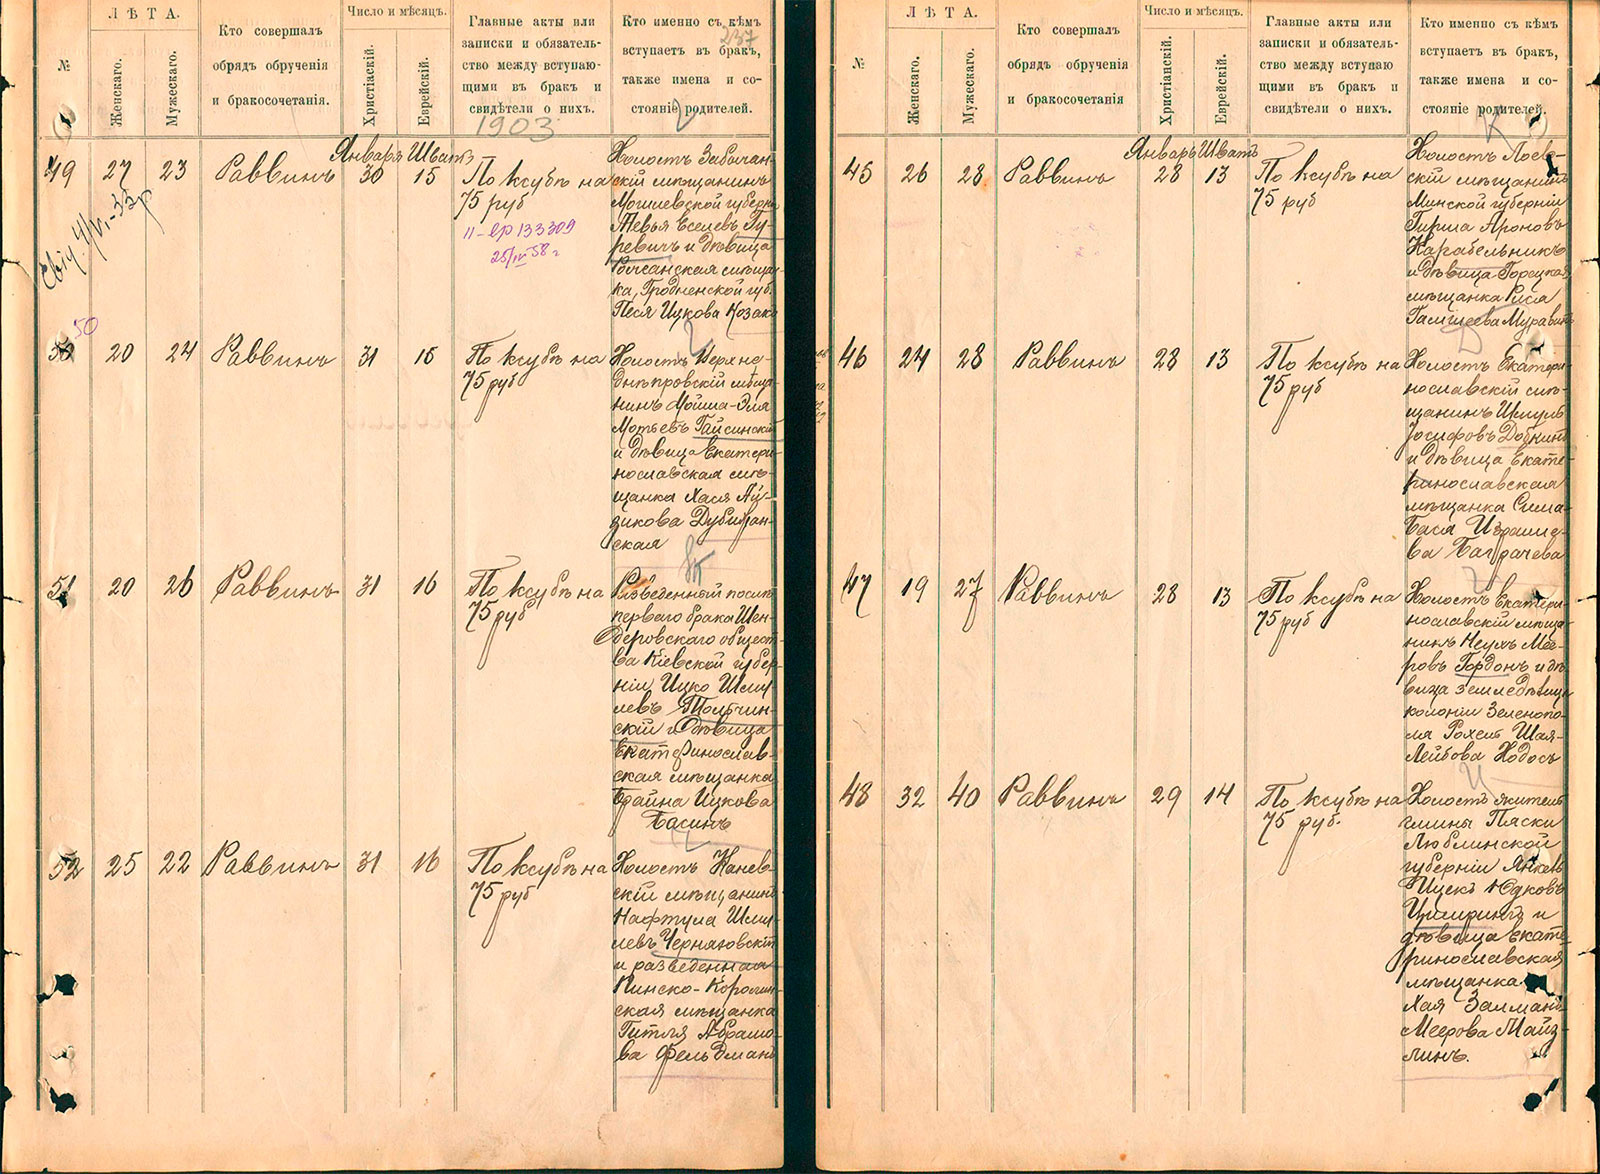 ЛѢТА.
Число и мѣсяцъ.
№
Женскаго.
Мужескаго.
Кто совершалъ
обрядъ обрученія
и бракосочетанія.
Христіаскій.
Еврейскій.
Главные акты или
записки и обязатель-
ство между вступаю-
щими въ бракъ и
свидѣтели о нихъ.
Кто именно съ кѣмъ
вступаетъ въ бракъ,
также имена и со-
стояніе родителей.
237
1903
Января Шватъ
49 27 23 Раввинъ 30 15
По ксубѣ на
75 руб
25/IV 58 г
Холостъ Забычан-
скій мѣщанинъ
Могилевской губерн
Левья Еселевъ Гу-
ревичъ и дѣвица
мѣщан-
ка, Гродненской губ.
Песя Ицкова Козакъ
50 20 24 Раввинъ 31 15
По ксубѣ на
75 руб
Холостъ Верхне-
днѣпровскій мѣща-
нинъ Мойша-Эля
Мотьевъ Гайсинскій
и дѣвица Екатери-
нославская мѣ-
щанка Хася Ай-
зикова
ская
51 20 26 Раввинъ 31 16
По ксубѣ на
75 руб
Разведенный послѣ
перваго брака Шен-
деровскаго общест-
ва Кіевской губер-
ніи Ицко Шму-
левъ Толчин-
скій и дѣвица
Екатеринослав-
ская мѣщанка
Брайна Ицкова
Басинъ
52 25 22 Раввинъ 31 16
По ксубѣ на
75 руб
Холостъ Канев-
скій мѣщанинъ
Нафтула Шму-
левъ Черняховскій
и разведенная
Пинско-Каролин-
ская мѣщанка
Гитля Абрамо-
ва Фельдманъ
ЛѢТА.
Число и мѣсяцъ.
№
Женскаго.
Мужескаго.
Кто совершалъ
обрядъ обрученія
и бракосочетанія
Христіанскій.
Еврейскій.
Главные акты или
записки и обязатель-
ство между вступаю
щими въ бракъ и
свидѣтели о нихъ.
Кто именно съ кѣмъ
вступаетъ въ бракъ,
также имена и со-
стояніе родителей.
Январь Шватъ
45 26 28 Раввинъ 28 13
По ксубѣ на
75 руб
Холостъ Лоев-
скій мѣщанинъ
Минской губерніи
Гирша Ароновъ
Карабельникъ
и дѣвица Горецкая
мѣщанка Рися
Муравить
46 24 28 Раввинъ 28 13
По ксубѣ на
75 руб
Холостъ Екатери-
нославскій мѣ-
щанинъ Шмуль
Іосифовъ Добкинъ
и дѣвица Екате-
ринославская
мѣщанка Сима-
Бася Израиле-
ва Баграчева
47 19 27 Раввинъ 28 13
По ксубѣ на
75 руб
Холостъ Екатери-
нославскій мѣща-
нинъ Неухъ Мее-
ровъ Гордонъ и дѣ-
вица земледѣлица
колоніи Зеленопо-
ля Рохель Шая-
Лейбова Ходосъ
48 32 40 Раввинъ 29 14
По ксубѣ на
75 руб.
Холостъ житель
гмины Пяски
Люблинской
губерніи Янкель
Ицекъ Юдковъ
Цимрингъ и
дѣвица Екате-
ринославская
мѣщанка
Хая Залмано-
Меерова Майз-
линъ.